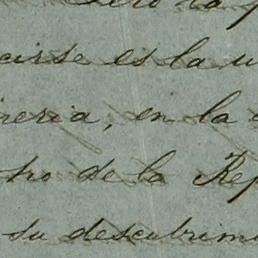 Pero la p
cirse es la u
neria, en la
tro de la Rep
su descubrim